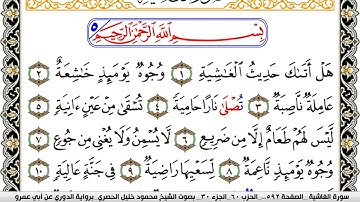 بِسْمِ اللَّهِ الرَّحْمَٰنِ الرَّحِيمِ
هَلْ أَتَىٰكَ حَدِيثُ الْغَٰشِيَةِ ١ وُجُوهٌ يَوْمَئِذٍ خَٰشِعَةٌ ٢
عَامِلَةٌ نَّاصِبَةٌ ٣ تُصْلَىٰ نَارًا حَامِيَةً ٤ تُسْقَىٰ مِنْ عَيْنٍ ءَانِيَةٍ ٥
لَّيْسَ لَهُمْ طَعَامٌ إِلَّا مِن ضَرِيعٍ ٦ لَّا يُسْمِنُ وَلَا يُغْنِي مِن جُوعٍ ٧
وُجُوهٌ يَوْمَئِذٍ نَّاعِمَةٌ ٨ لِّسَعْيِهَا رَاضِيَةٌ ٩ فِي جَنَّةٍ عَالِيَةٍ ١٠
سورة الغاشية .. الصفحة ٥٩٢ .. الحزب ٦٠ .. الجزء ٣٠ .. بصوت الشيخ محمود خليل الحصري برواية الدوري عن أبي عمرو